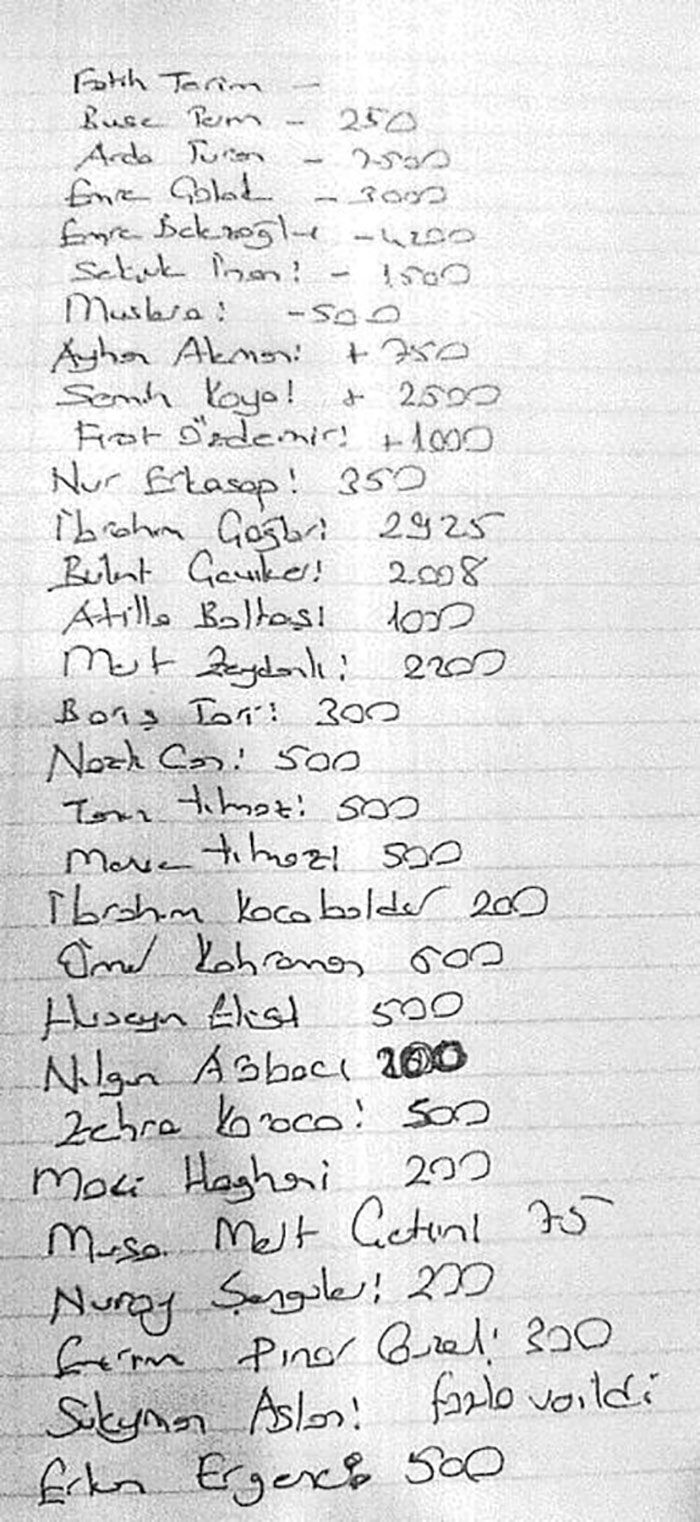 Fatih Terim -
Buse Terim - 250
Arda Turan - 7500
Emre Çolak - 3000
Emre Belezoğlu - 4200
Selçuk İnan! - 1500
Muslera! - 500
Ayhan Akman! + 750
Semih Kaya! + 2500
Fırat Özdemir! + 1000
Nur Erkasap! 350
İbrahim Çağlar! 2925
Bülent Çeviker! 2008
Atilla Baltaş! 1000
Mert Zeydanlı! 2200
Barış Tari! 300
Nazlı Can! 500
Tanın Yılmaz! 500
Merve Yılmaz! 500
İbrahim Kocabalder 200
Ömer Kahraman 600
Hüseyin 500
Nilgün A3bacı 200
Zehra Karaca! 500
Haghani 200
Musa Mert Çetin! 75
Nuray Şengüler! 200
Pınar Güzel! 300
Süleyman Aslan! fazla verildi
500